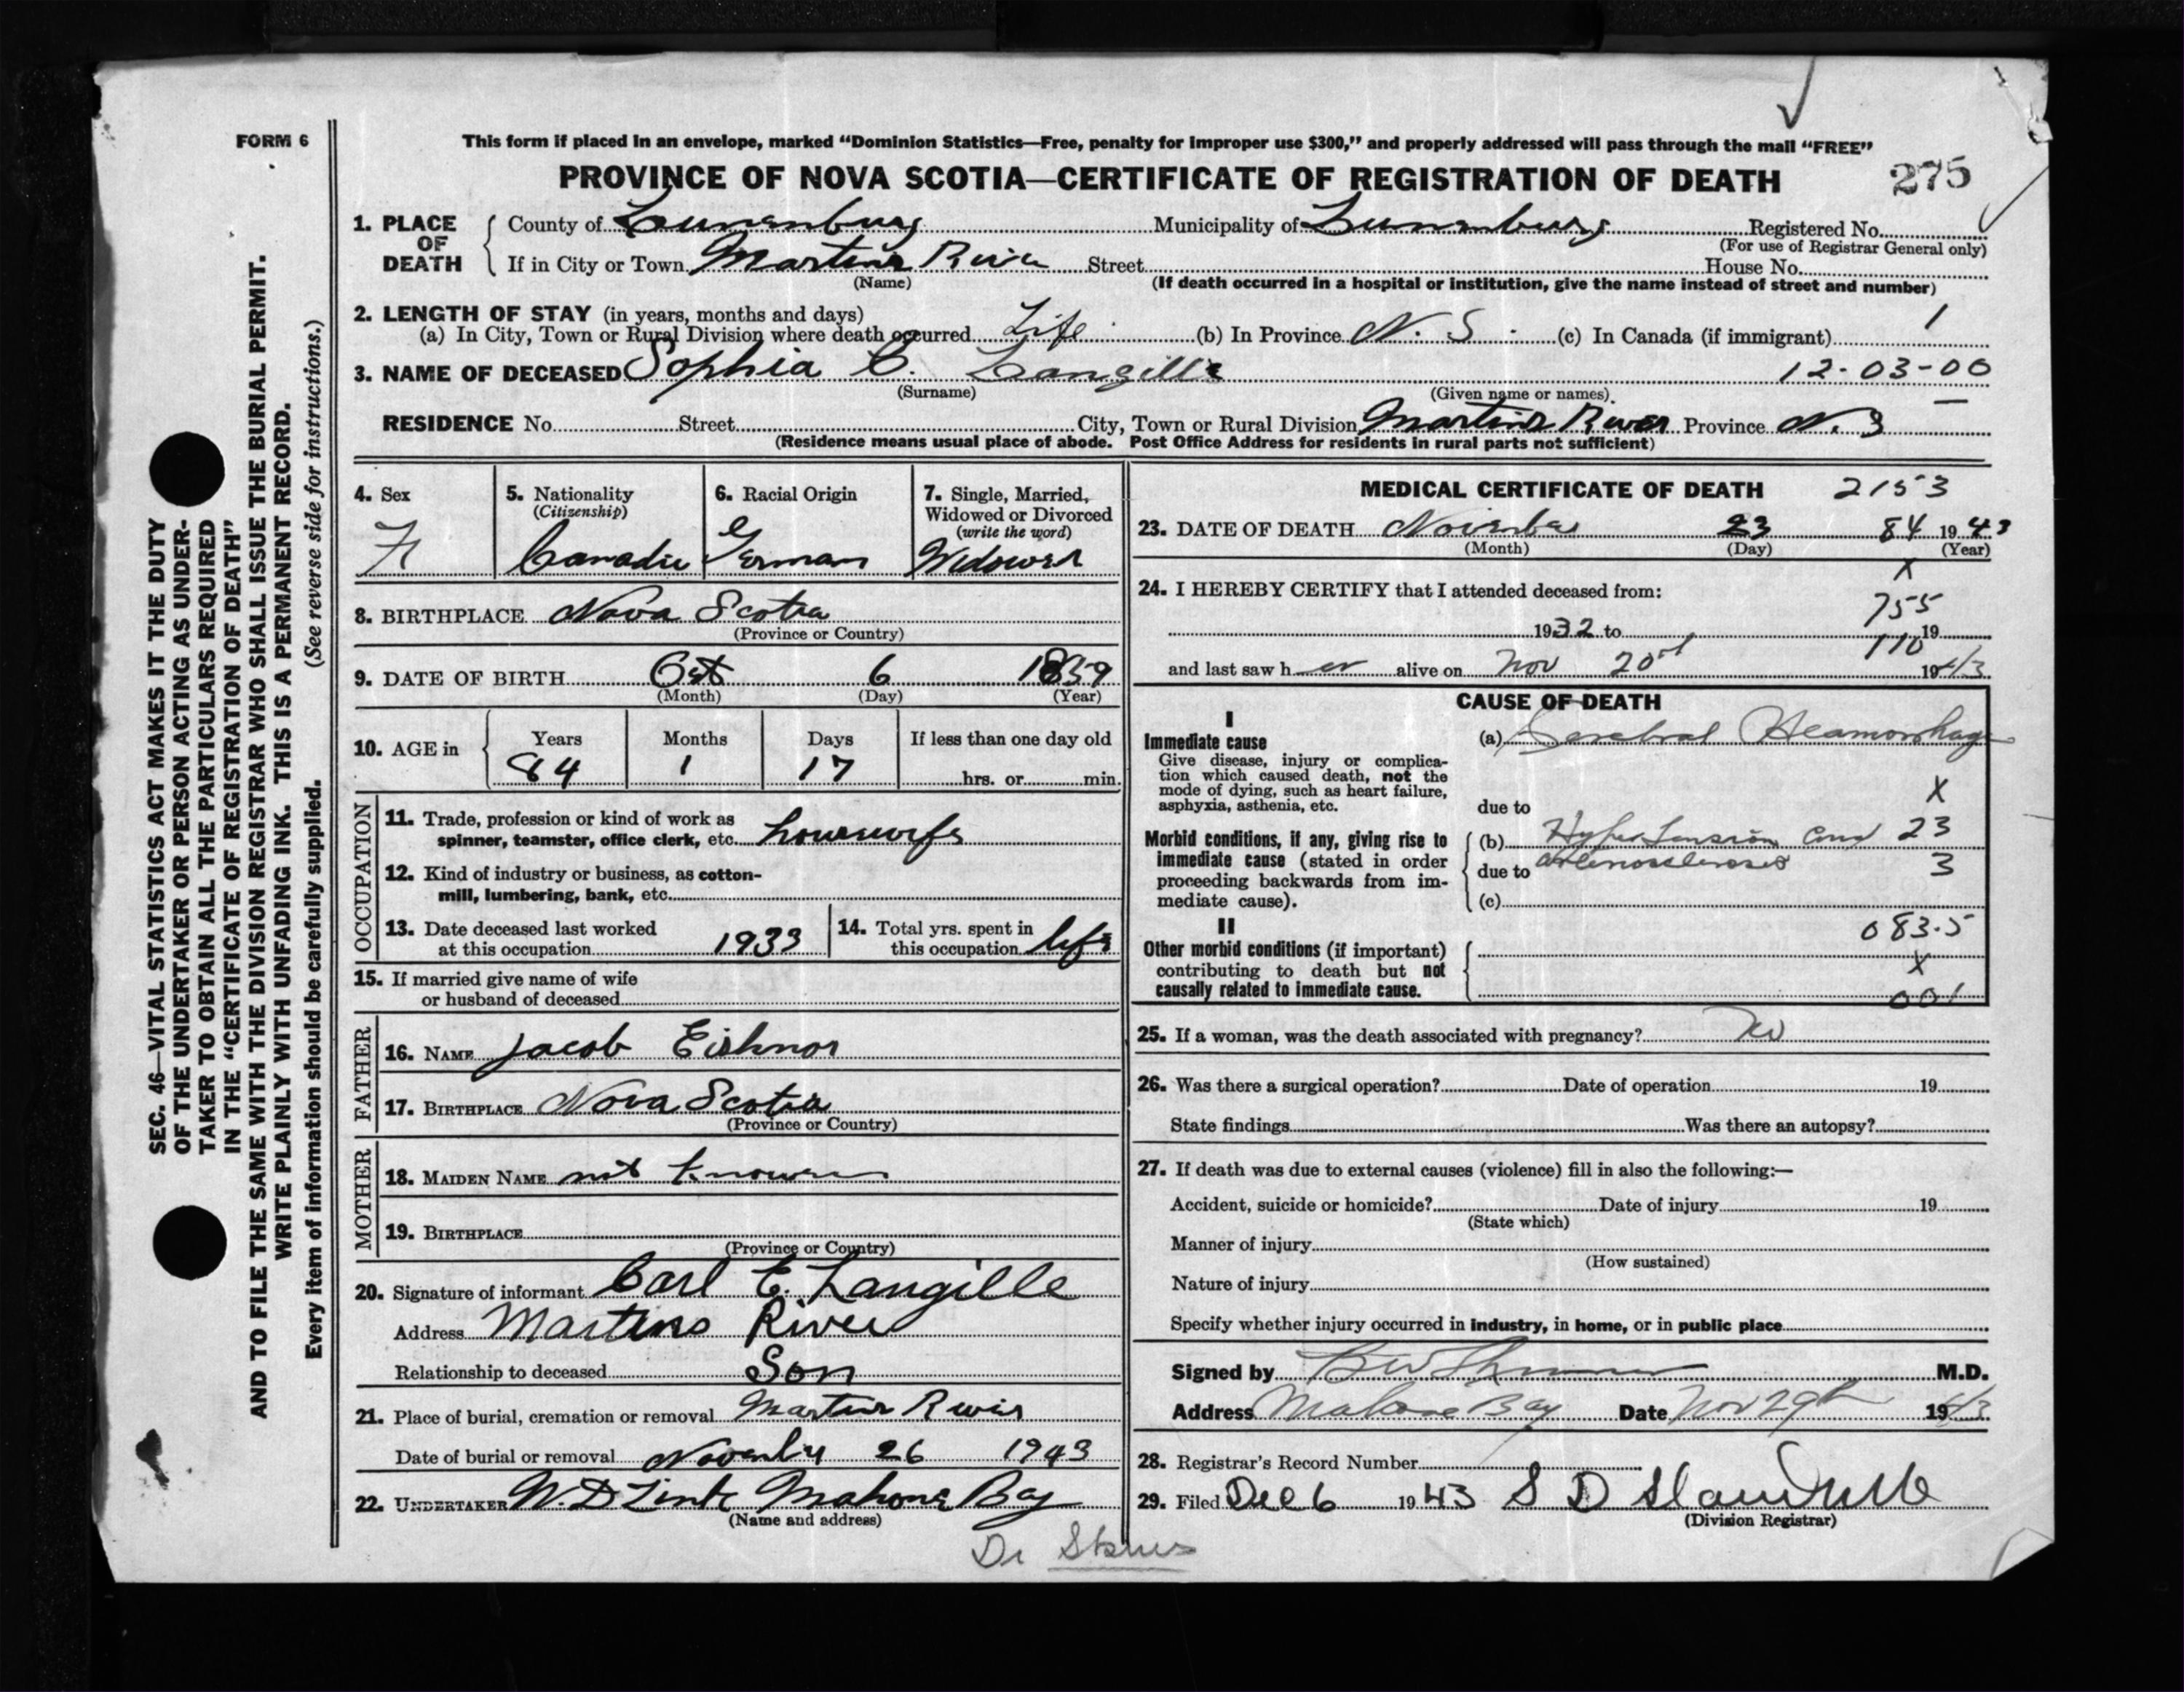 FORM 6
This form if placed in an envelope, marked "Dominion Statistics—Free, penalty for improper use $300," and properly addressed will pass through the mail "FREE"
PROVINCE OF NOVA SCOTIA—CERTIFICATE OF REGISTRATION OF DEATH
275
1. PLACE OF DEATH
County of Lunenburg Municipality of Lunenburg Registered No.
(For use of Registrar General only)
If in City or Town Martins River Street House No.
(Name) (If death occurred in a hospital or institution, give the name instead of street and number)
2. LENGTH OF STAY (in years, months and days)
(a) In City, Town or Rural Division where death occurred Life (b) In Province N. S. (c) In Canada (if immigrant) 1
3. NAME OF DECEASED Sophia C. Langille 12-03-00
(Surname) (Given name or names)
RESIDENCE No. Street City, Town or Rural Division Martins River Province N. S
(Residence means usual place of abode. Post Office Address for residents in rural parts not sufficient)
4. Sex
F
5. Nationality
(Citizenship)
6. Racial Origin
German
7. Single, Married, Widowed or Divorced
(write the word)
Widowed
8. BIRTHPLACE Nova Scotia
(Province or Country)
9. DATE OF BIRTH Oct 6 1859
(Month) (Day) (Year)
10. AGE in
Years Months Days If less than one day old
84 1 17 hrs. or min.
OCCUPATION
11. Trade, profession or kind of work as
spinner, teamster, office clerk, etc. housewife
12. Kind of industry or business, as cotton-
mill, lumbering, bank, etc.
13. Date deceased last worked
at this occupation 1933
14. Total yrs. spent in
this occupation life
15. If married give name of wife
or husband of deceased
FATHER
16. NAME Jacob Eishnor
17. BIRTHPLACE Nova Scotia
(Province or Country)
MOTHER
18. MAIDEN NAME not known
19. BIRTHPLACE
(Province or Country)
20. Signature of informant Carl E. Langille
Address Martins River
Relationship to deceased Son
21. Place of burial, cremation or removal Martins River
Date of burial or removal 26 1943
22. UNDERTAKER W. D Zink Mahone Bay
(Name and address)
Dr
MEDICAL CERTIFICATE OF DEATH 2153
23. DATE OF DEATH November 23 84 1943
(Month) (Day) (Year)
24. I HEREBY CERTIFY that I attended deceased from:
X
755
1932 to 19
110
and last saw her alive on Nov 20 1943
CAUSE OF DEATH
I
Immediate cause
Give disease, injury or complica-
tion which caused death, not the
mode of dying, such as heart failure,
asphyxia, asthenia, etc.
(a) Cerebral Heamorrhage
due to
X
Morbid conditions, if any, giving rise to
immediate cause (stated in order
proceeding backwards from im-
mediate cause).
(b) Hypertension and 23
due to arteriosclerosis 3
(c)
083.5
II
Other morbid conditions (if important)
contributing to death but not
causally related to immediate cause.
X
001
25. If a woman, was the death associated with pregnancy? No
26. Was there a surgical operation? Date of operation 19
State findings Was there an autopsy?
27. If death was due to external causes (violence) fill in also the following:—
Accident, suicide or homicide? Date of injury 19
(State which)
Manner of injury
(How sustained)
Nature of injury
Specify whether injury occurred in industry, in home, or in public place
Signed by M.D.
Address Mahone Bay Date Nov 29th 1943
28. Registrar's Record Number
29. Filed Dec 6 1943 S D
(Division Registrar)
SEC. 46—VITAL STATISTICS ACT MAKES IT THE DUTY
OF THE UNDERTAKER OR PERSON ACTING AS UNDER-
TAKER TO OBTAIN ALL THE PARTICULARS REQUIRED
IN THE "CERTIFICATE OF REGISTRATION OF DEATH"
AND TO FILE THE SAME WITH THE DIVISION REGISTRAR WHO SHALL ISSUE THE BURIAL PERMIT.
WRITE PLAINLY WITH UNFADING INK. THIS IS A PERMANENT RECORD.
Every item of information should be carefully supplied. (See reverse side for instructions.)